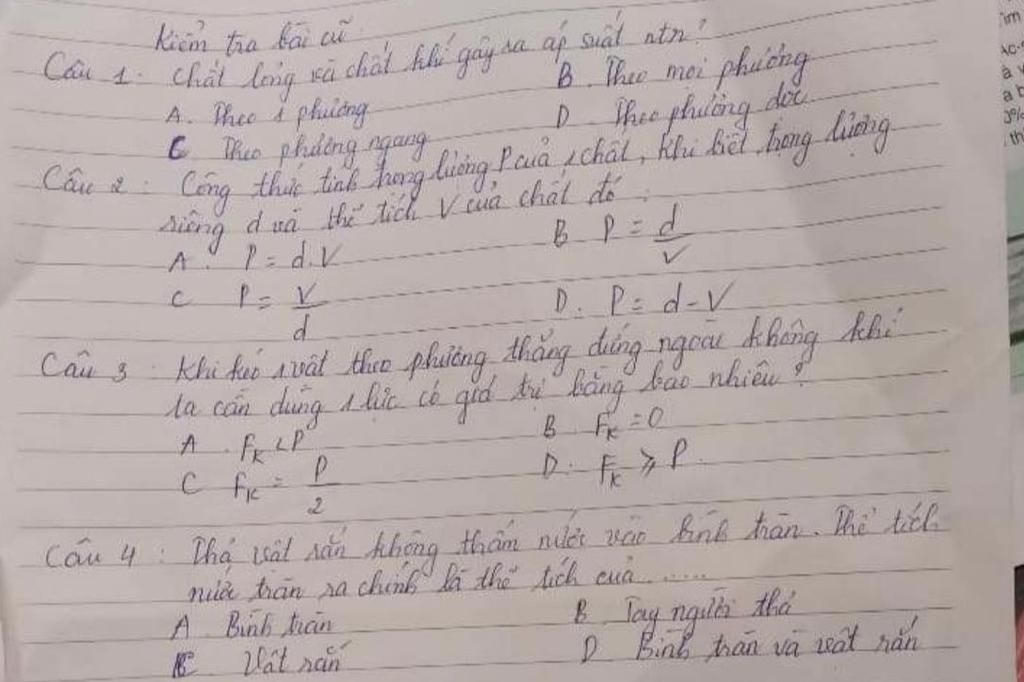 Kiểm tra bài cũ
Câu 1. Chất lỏng và chất khí gây ra áp suất ntn?
A. Theo 1 phương B. Theo mọi phương
C Theo phương ngang D Theo phương dọc
Câu 2: Công thức tính trọng lượng P của 1 chất, khi biết trọng lượng
riêng d và thể tích V của chất đó:
A. P = d.V B P = d/V
C P = V/d D. P = d - V
Câu 3: Khi kéo 1 vật theo phương thẳng đứng ngoài không khí
ta cần dùng 1 lực có giá trị bằng bao nhiêu?
A. FK < P B. FK = 0
C FK = P/2 D. FK ⩾ P.
Câu 4: Thả vật rắn không thấm nước vào bình tràn. Thể tích
nước tràn ra chính là thể tích của .....
A. Bình tràn B Tay người thả
C Vật rắn D Bình tràn và vật rắn